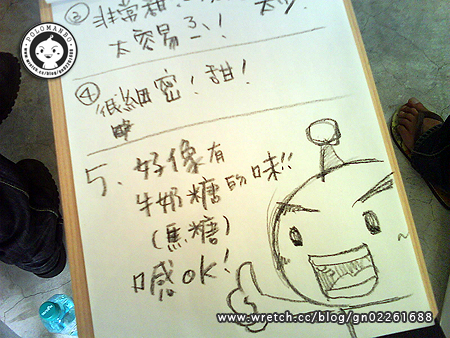 ② 非常甜!
太容易了!
④ 很細密!甜!
5、好像有
牛奶糖的味!!
(焦糖)
喊OK!
POLOMANBO
www.wretch.cc/blog/gn02261688
www.wretch.cc/blog/gn02261688